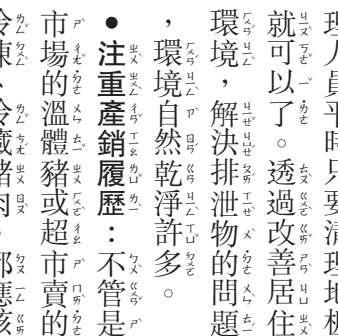 理人員平時只要清理地板
就可以了。透過改善居住
環境,解決排泄物的問題
,環境自然乾淨許多。
●注重產銷履歷:不管是
市場的溫體豬或超市賣的
冷凍、冷藏豬肉,都應該